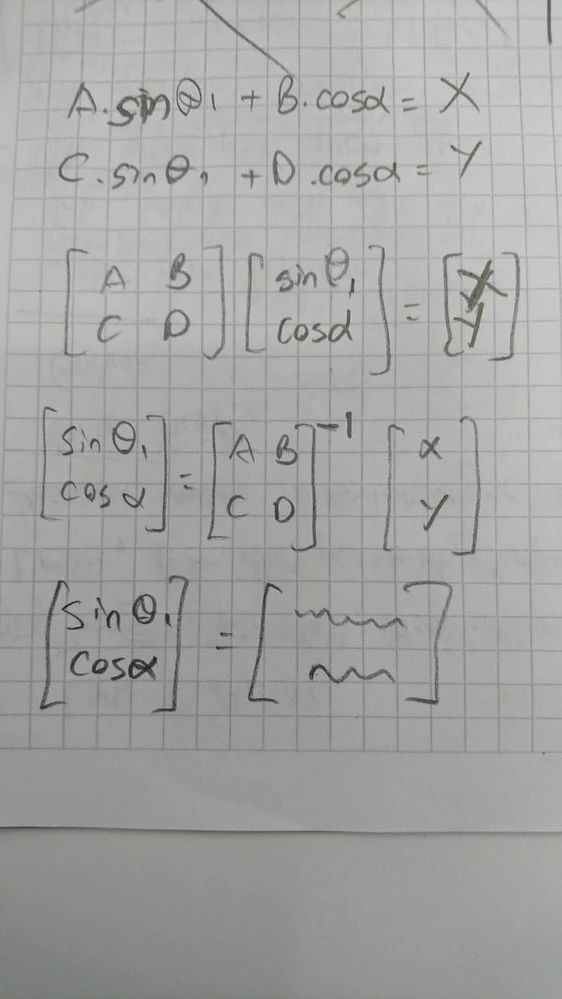 A.sinθ₁ + B.cosα = X
C.sinθ₁ + D.cosα = Y
[A B; C D] [sinθ₁; cosα] = [X; Y]
[sinθ₁; cosα] = [A B; C D]⁻¹ [x; y]
[sinθ₁; cosα] = [ ]